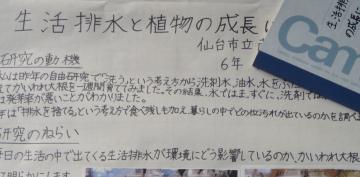 生活排水と植物の成長
仙台市立
6年
研究の動機
私は昨年の自由研究で「そうという考え方から、洗剤水、油水、水を
てかいわれ大根を一週間育ててみました。その結果、水ではま、すぐに、洗剤では
は発芽率が悪いことがわかりました。
は「排水を捨てる」という考え方で食べ残しも加え、暮らしの中でどの位汚れが出ているのか、を調べ
研究のねらい
毎日の生活の中で出てくる生活排水が環境にどう影響しているのか、かいわれ大根
て明らかにします。
生活排水
の成長
Cam